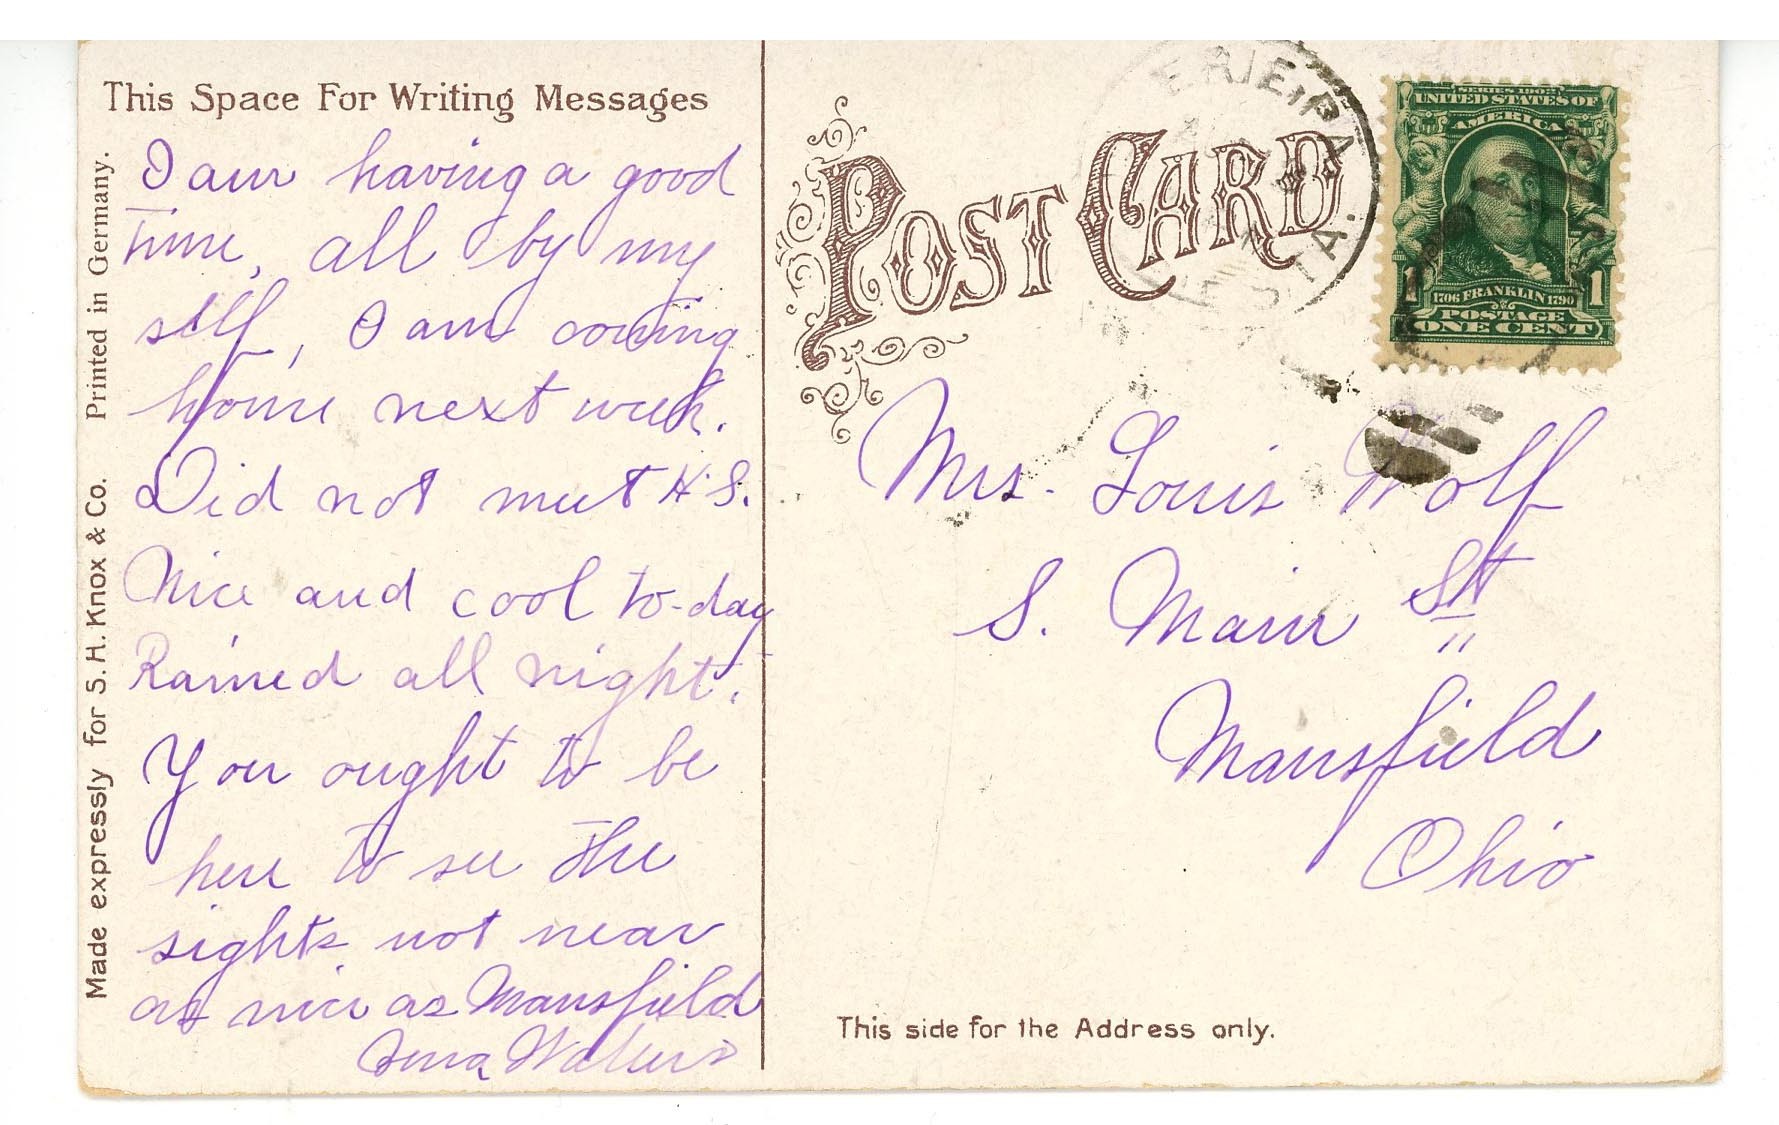 This Space For Writing Messages
I am having a good
time, all by my
self, I am coming
home next week.
Did not meet H.S.
Nice and cool to-day
Rained all night.
You ought to be
here to see the
sights not near
as nice as Mansfield
Walters
Made expressly for S. H. Knox & Co. Printed in Germany.
POST CARD
ERIE, PA.
STA.
SERIES 1902
UNITED STATES OF
AMERICA
1706 FRANKLIN 1790
1 1
POSTAGE
ONE CENT
Mrs. Louis Wolf
S. Main St
Mansfield
Ohio
This side for the Address only.